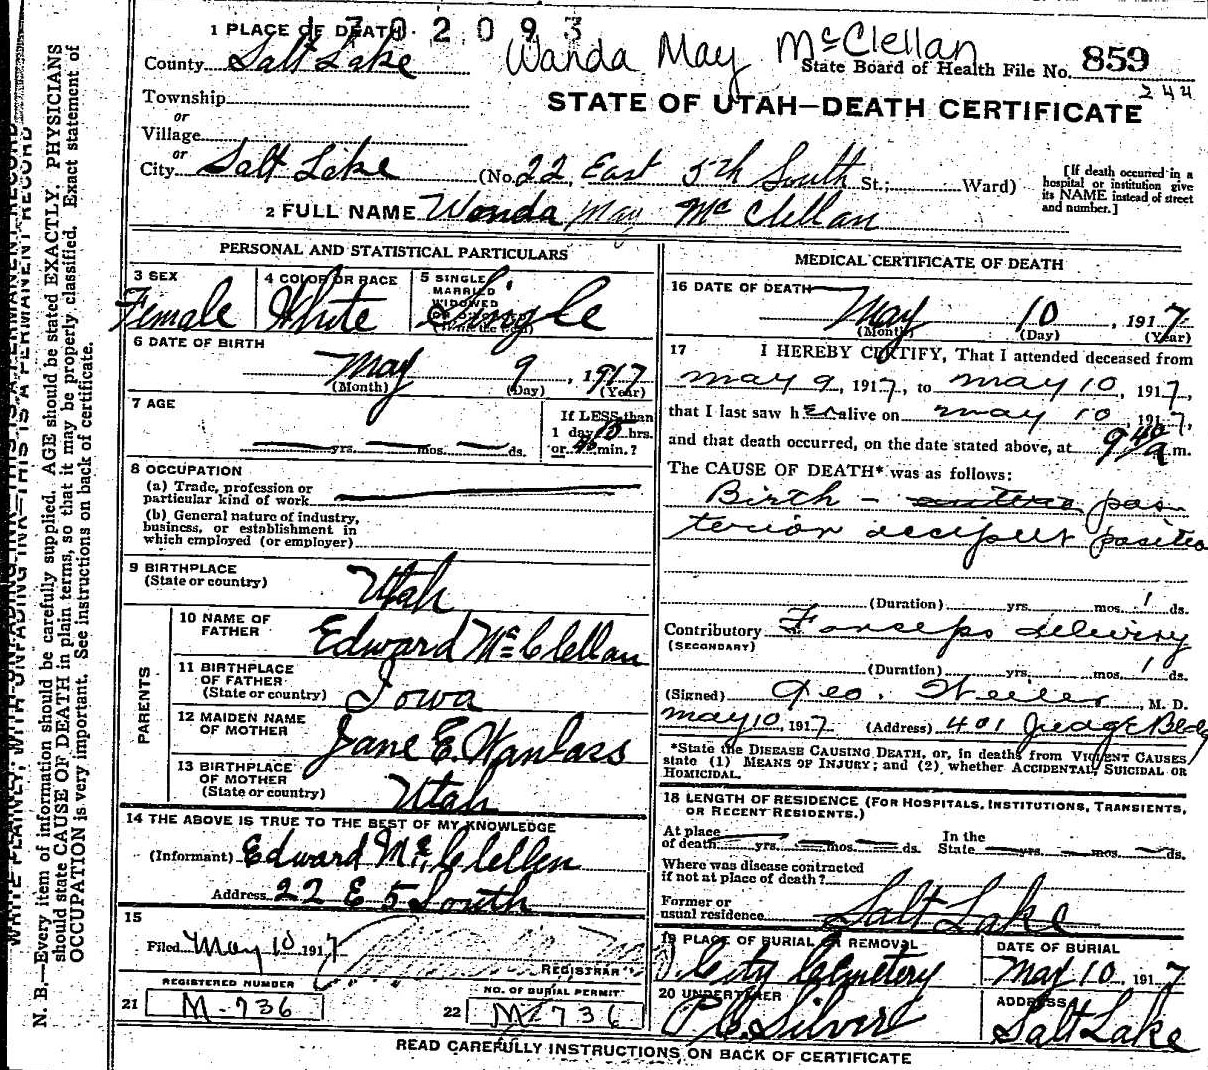 1 PLACE OF DEATH. 1702093
Wanda May McClellan
County Salt Lake
State Board of Health File No. 859
244
Township
or
Village
STATE OF UTAH—DEATH CERTIFICATE
or
City Salt Lake (No. 22 East 5th South St.; Ward)
[If death occurred in a hospital or institution give its NAME instead of street and number.]
2 FULL NAME Wanda May McClellan
PERSONAL AND STATISTICAL PARTICULARS
3 SEX
Female
4 COLOR OR RACE
White
5 SINGLE
MARRIED
WIDOWED
Single
6 DATE OF BIRTH
May 9, 1917
(Month) (Day) (Year)
7 AGE
yrs. mos. ds.
If LESS than
1 day hrs.
or min.?
8 OCCUPATION
(a) Trade, profession or
particular kind of work
(b) General nature of industry,
business, or establishment in
which employed (or employer)
9 BIRTHPLACE
(State or country)
Utah
PARENTS
10 NAME OF
FATHER
Edward McClellan
11 BIRTHPLACE
OF FATHER
(State or country)
Iowa
12 MAIDEN NAME
OF MOTHER
Jane E. Wanlass
13 BIRTHPLACE
OF MOTHER
(State or country)
Utah
14 THE ABOVE IS TRUE TO THE BEST OF MY KNOWLEDGE
(Informant) Edward McClellen
Address 22 E 5 South
15
Filed May 10 1917
REGISTRAR
REGISTERED NUMBER
21 M-736
NO. OF BURIAL PERMIT
22 M-736
MEDICAL CERTIFICATE OF DEATH
16 DATE OF DEATH
May 10, 1917
(Month) (Day) (Year)
17 I HEREBY CERTIFY, That I attended deceased from
May 9, 1917, to May 10, 1917,
that I last saw her alive on May 10, 1917,
and that death occurred, on the date stated above, at 9 40 a m.
The CAUSE OF DEATH* was as follows:
Birth - pos
terior occiput position
(Duration) yrs. mos. 1 ds.
Contributory Forseps delivery
(SECONDARY)
(Duration) yrs. mos. 1 ds.
(Signed) Geo. M. D.
May 10, 1917 (Address) 401 Judge Bldg
*State the DISEASE CAUSING DEATH, or, in deaths from VIOLENT CAUSES,
state (1) MEANS OF INJURY; and (2) whether ACCIDENTAL, SUICIDAL OR
HOMICIDAL.
18 LENGTH OF RESIDENCE (FOR HOSPITALS, INSTITUTIONS, TRANSIENTS,
OR RECENT RESIDENTS.)
At place
of death yrs. mos. ds.
In the
State yrs. mos. ds.
Where was disease contracted
if not at place of death?
Former or
usual residence Salt Lake
19 PLACE OF BURIAL OR REMOVAL
City Cemetery
DATE OF BURIAL
May 10, 1917
20 UNDERTAKER
ADDRESS
Salt Lake
READ CAREFULLY INSTRUCTIONS ON BACK OF CERTIFICATE
WRITE PLAINLY, WITH UNFADING INK—THIS IS A PERMANENT RECORD
N. B.—Every item of information should be carefully supplied. AGE should be stated EXACTLY. PHYSICIANS
should state CAUSE OF DEATH in plain terms, so that it may be properly classified. Exact statement of
OCCUPATION is very important. See instructions on back of certificate.